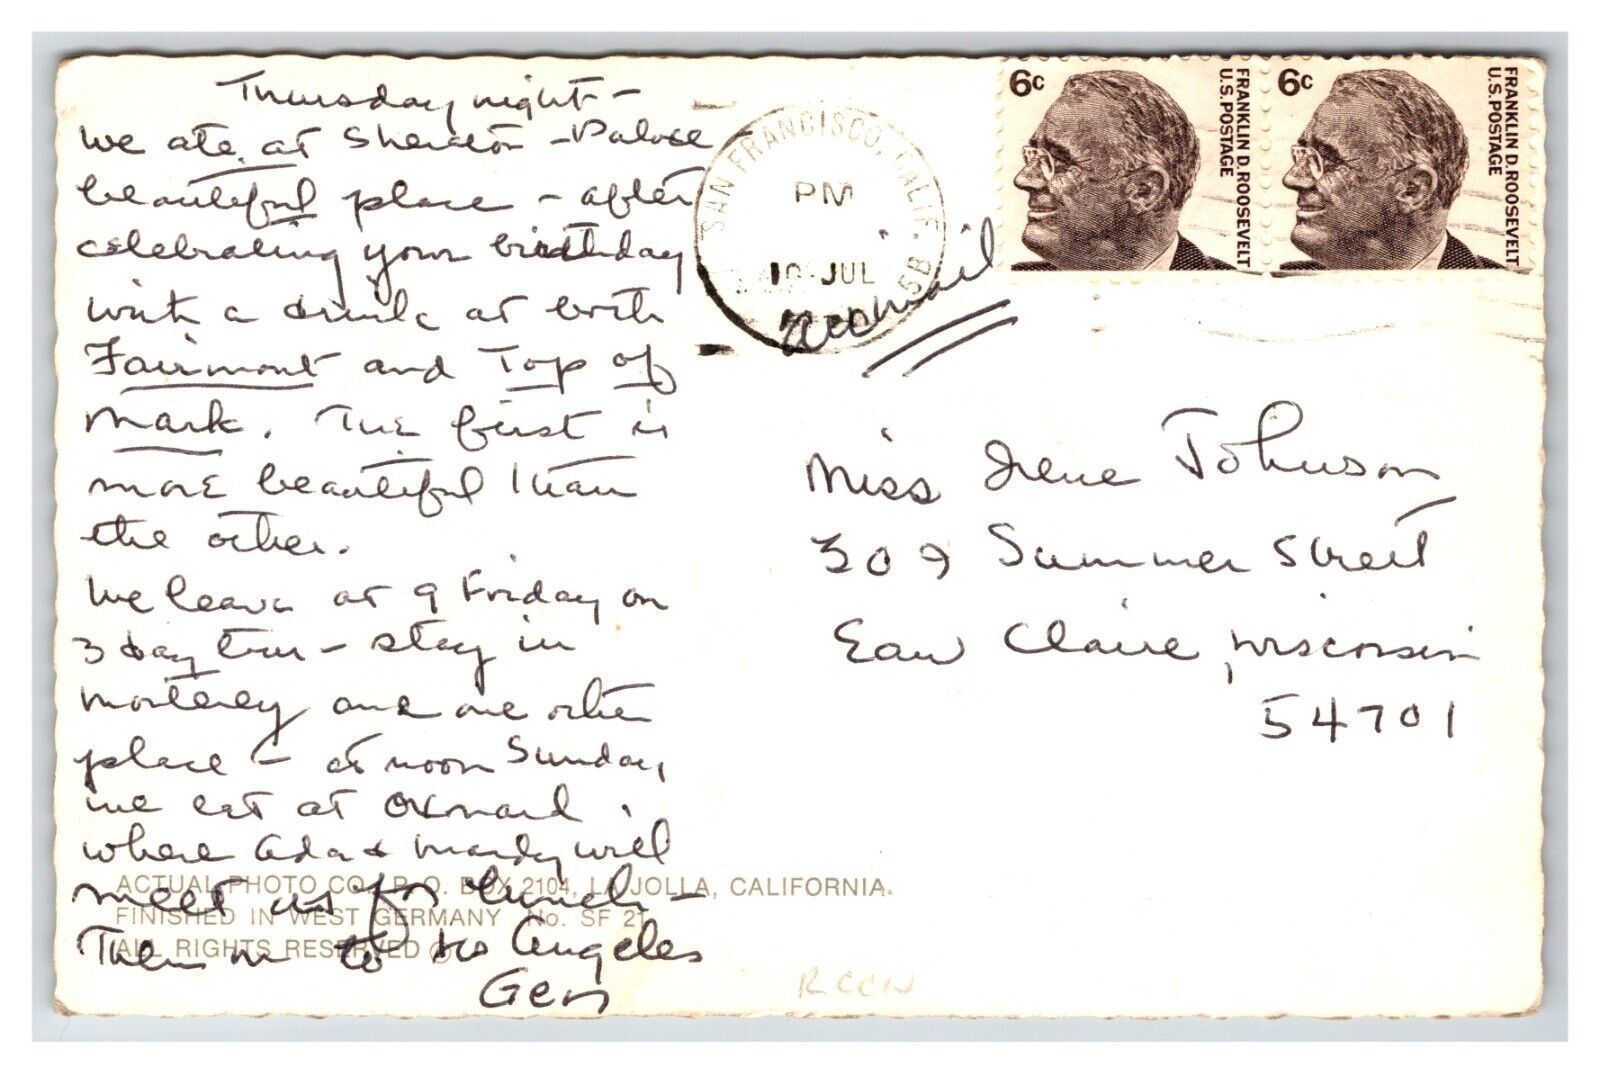 Thursday night -
We ate at Sheraton - Palace
beautiful place - after
celebrating your birthday
with a drink at both
Fairmont and Top of
Mark. The first is
more beautiful than
the other.
We leave at 9 Friday on
3 day tour - stay in
Monterey and one other
place - at noon Sunday
we eat at Oxnard
where Ada & Mandy will
meet us for lunch -
Then on to Los Angeles
Gen
ACTUAL PHOTO CO., P. O. BOX 2104, LA JOLLA, CALIFORNIA.
FINISHED IN WEST GERMANY No. SF 21
ALL RIGHTS RESERVED ©
SAN FRANCISCO, CALIF.
PM
10 JUL
5B
Air mail
6c
FRANKLIN D. ROOSEVELT
U.S. POSTAGE
6c
FRANKLIN D. ROOSEVELT
U.S. POSTAGE
Miss Irene Johnson
309 Summer Street
Eau Claire, Wisconsin
54701